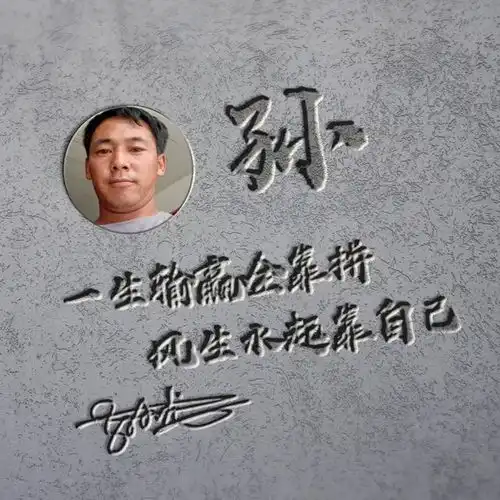 孙
一生输赢全靠拼
风生水起靠自己